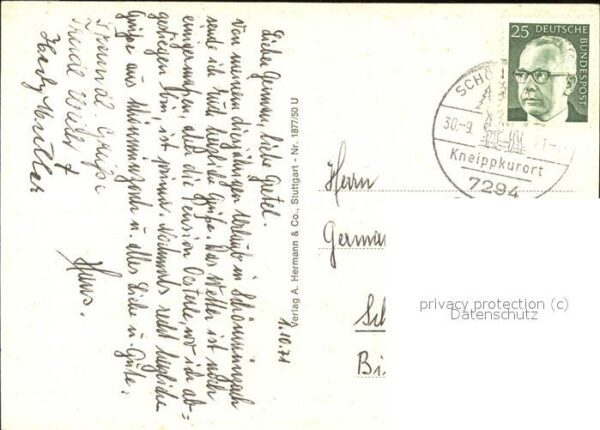 Liebe German, liebe Gretel.
Von meinem diesjährigen Urlaub in Schönmünzach
sende ich Euch herzliche Grüße. Das Wetter ist noch
einigermaßen, aber die Pension Oesterle, wo ich ab=
gestiegen bin, ist prima. Nochmals recht herzliche
Grüße aus Schönmünzach u. alles Liebe u. Gute.
Hans.
Grüße
Trude
1.10.71
Verlag A. Hermann & Co., Stuttgart - Nr. 1877/50 U
25 DEUTSCHE BUNDESPOST
SCHÖ
30.-9. 71-
Kneippkurort
7294
Herrn
German
Sch
Bi
privacy protection (c)
Datenschutz